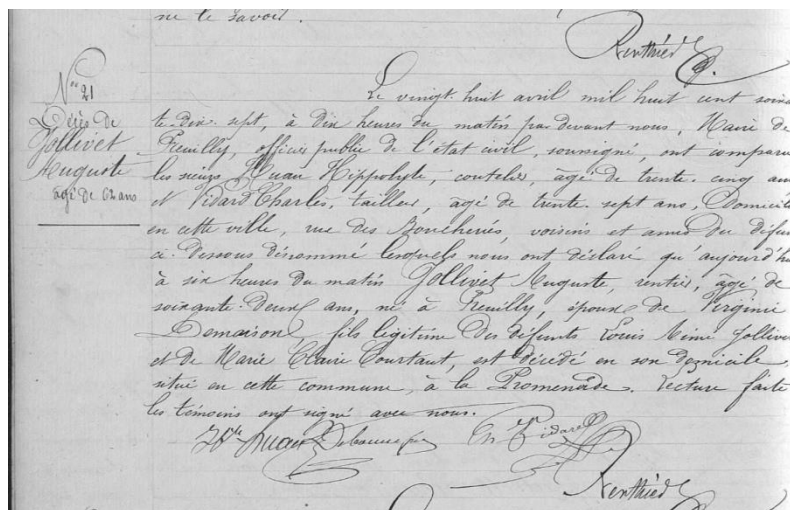 ne le savoir.
Renthied
Nos 21
Décès de
Jollivet
Auguste
agé de 62 ans
Le vingt-huit avril mil huit cent soixan
te-dix-sept, à dix heures du matin par devant nous, Maire de
Preuilly, officier public de l'état civil, soussigné, ont comparu
les sieurs Ruau Hippolyte, coutelier, agé de trente-cinq ans
et Vidard Charles, tailleur, agé de trente-sept ans, Domiciliés
en cette ville, rue des Boucheries, voisins et amis du défunt
ci-dessous dénommé lesquels nous ont déclaré qu'aujourd'hui
à six heures du matin Jollivet Auguste, rentier, âgé de
soixante-deux ans, né à Preuilly, époux de Virginie
Demaison, fils légitime des défunts Louis Jollivet
et de Marie Claire Courtaut, est décédé en son domicile
situé en cette commune, à la Promenade. Lecture faite
les témoins ont signé avec nous.
Hte Ruau Ch Vidard
Renthied